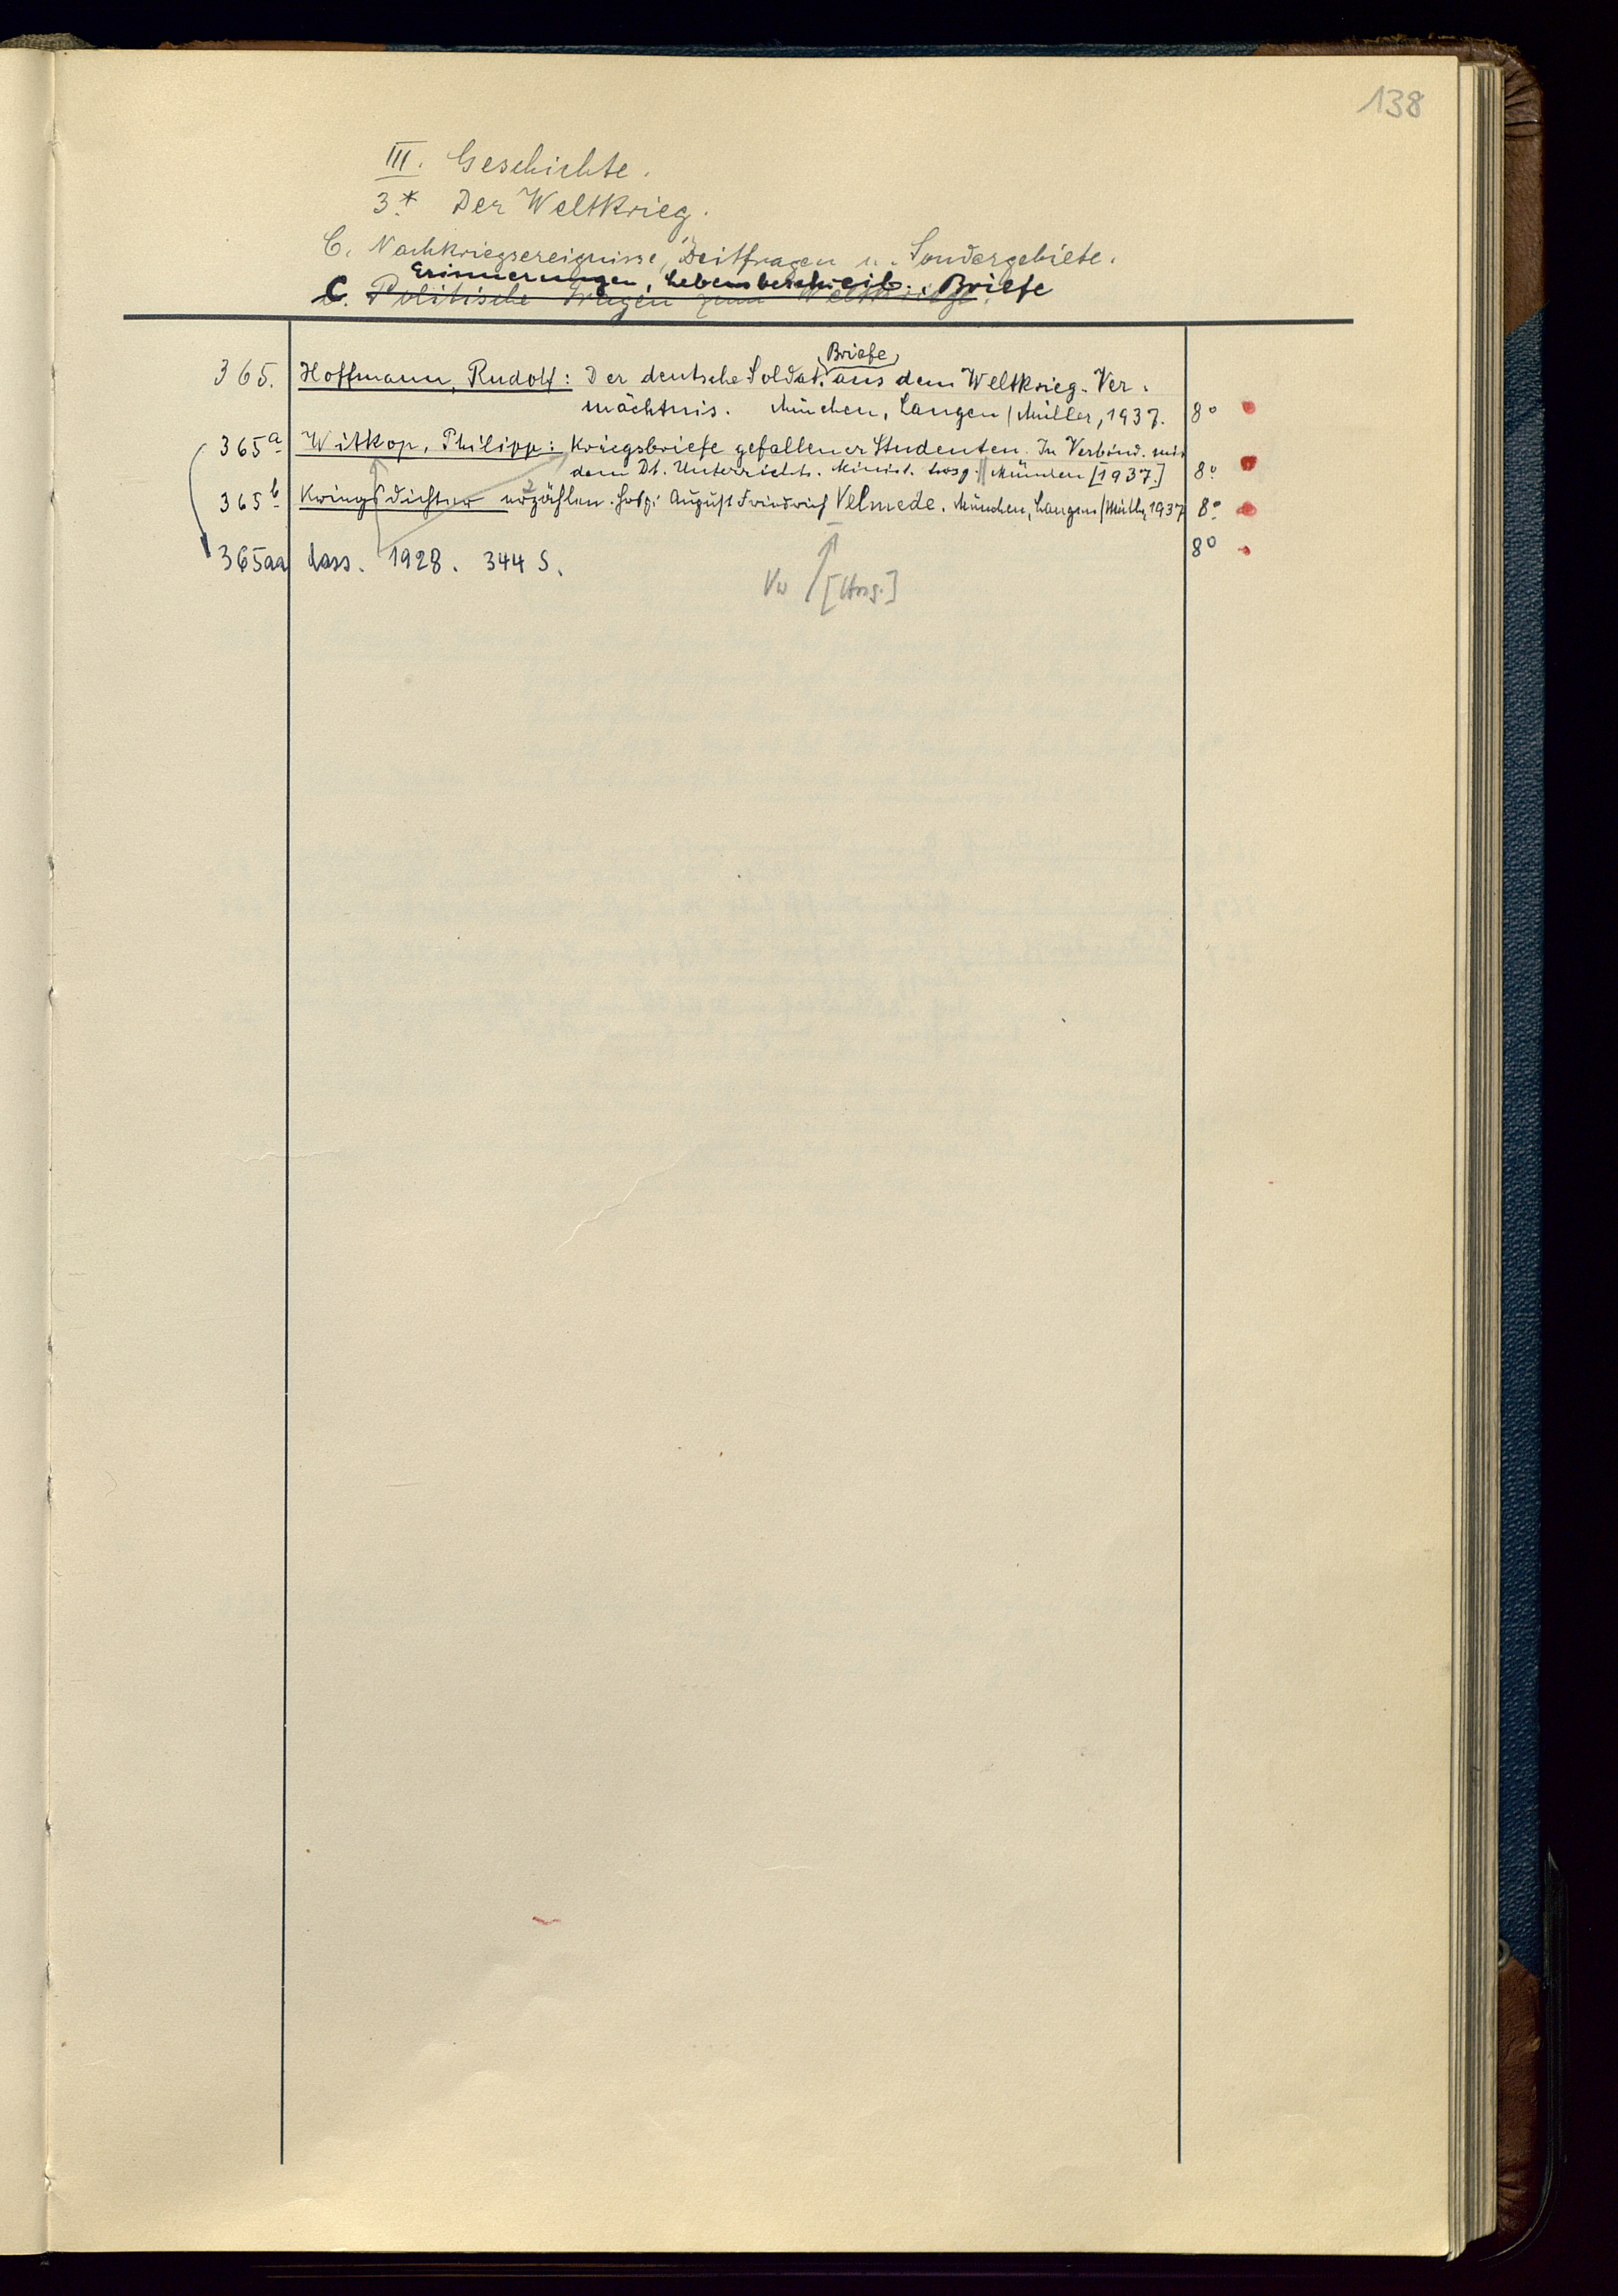 138
III. Geschichte.
3.* Der Weltkrieg.
C. Nachkriegsereignisse, Zeitfragen u. Sondergebiete.
Erinnerungen, Lebensbeschreib., Briefe
c. Politische Fragen zum Weltkriege.
Briefe
365. Hoffmann, Rudolf: Der deutsche Soldat. aus dem Weltkrieg. Ver-
mächtnis. München, Langen/Müller, 1937. 8°
365a Witkop, Philipp: Kriegsbriefe gefallener Studenten. In Verbind. mit
dem Dt. Unterrichts. Minist. hrsg. || München [1937.] 8°
365b Kriegsdichter erzählen. Hrsg: August Friedrich Velmede. München, Langen/Müller, 1937 8°
365aa dass. 1928. 344 S. 8°
Vw [Hrsg.]